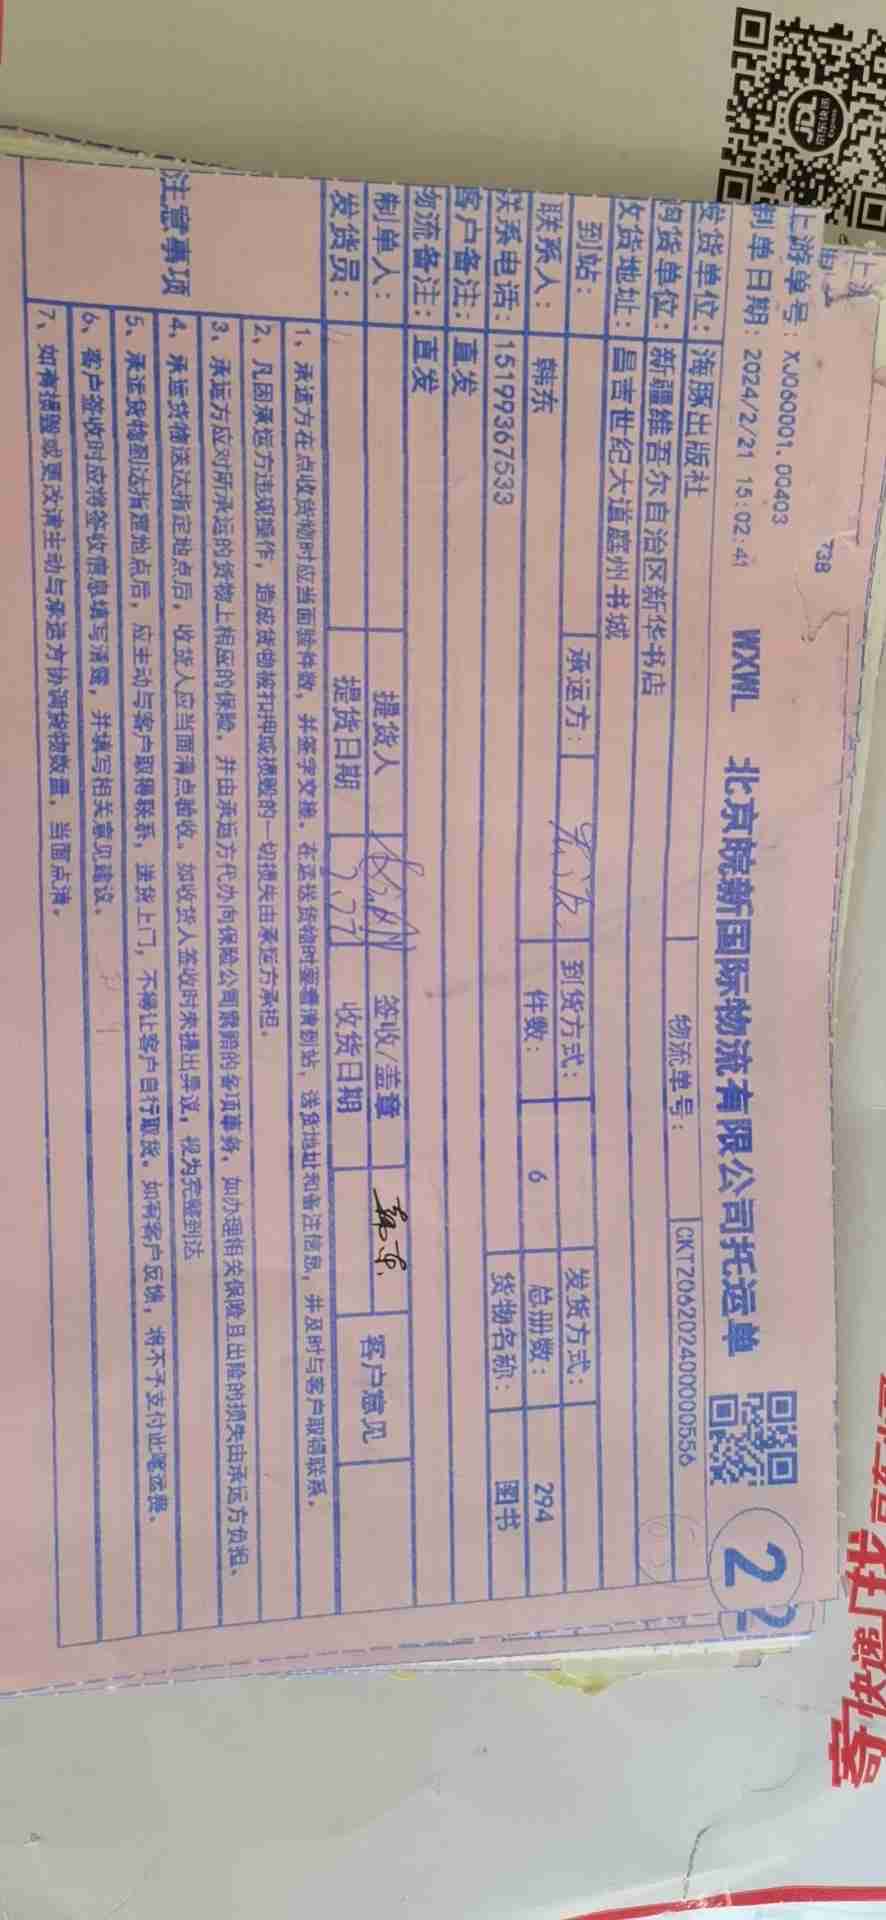 上游单号：XJ060001.00403
738
制单日期：2024/2/21 15:02:41
WXWL 北京皖新国际物流有限公司托运单
2
发货单位：海豚出版社
物流单号：CKTZ06202400000556
购货单位：新疆维吾尔自治区新华书店
收货地址：昌吉世纪大道庭州书城
到站： 承运方： 到货方式： 发货方式：
联系人：韩东 件数：6 总册数：294
联系电话：15199367533 货物名称：图书
客户备注：直发
物流备注：直发
制单人： 提货人 签收/盖章 韩东 客户意见
发货员： 提货日期 2.27 收货日期
注意事项
1、承运方在点收货物时应当面验件数，并签字交接。在运送货物时要看清到站，送货地址和备注信息，并及时与客户取得联系。
2、凡因承运方违规操作，造成货物被扣押或损毁的一切损失由承运方承担。
3、承运方应对所承运的货物上相应的保险，并由承运方代办向保险公司索赔的各项事务，如办理相关保险且出险的损失由承运方负担。
4、承运货物送达指定地点后，收货人应当面清点验收。如收货人签收时未提出异议，视为完整到达
5、承运货物到达指定地点后，应主动与客户取得联系，送货上门，不得让客户自行取货。如有客户反馈，将不予支付此笔运费。
6、客户签收时应将签收信息填写清楚，并填写相关意见建议。
7、如有损毁或更改请主动与承运方协调货物数量，当面点清。
JDL
京东快递
寄快递 找京东